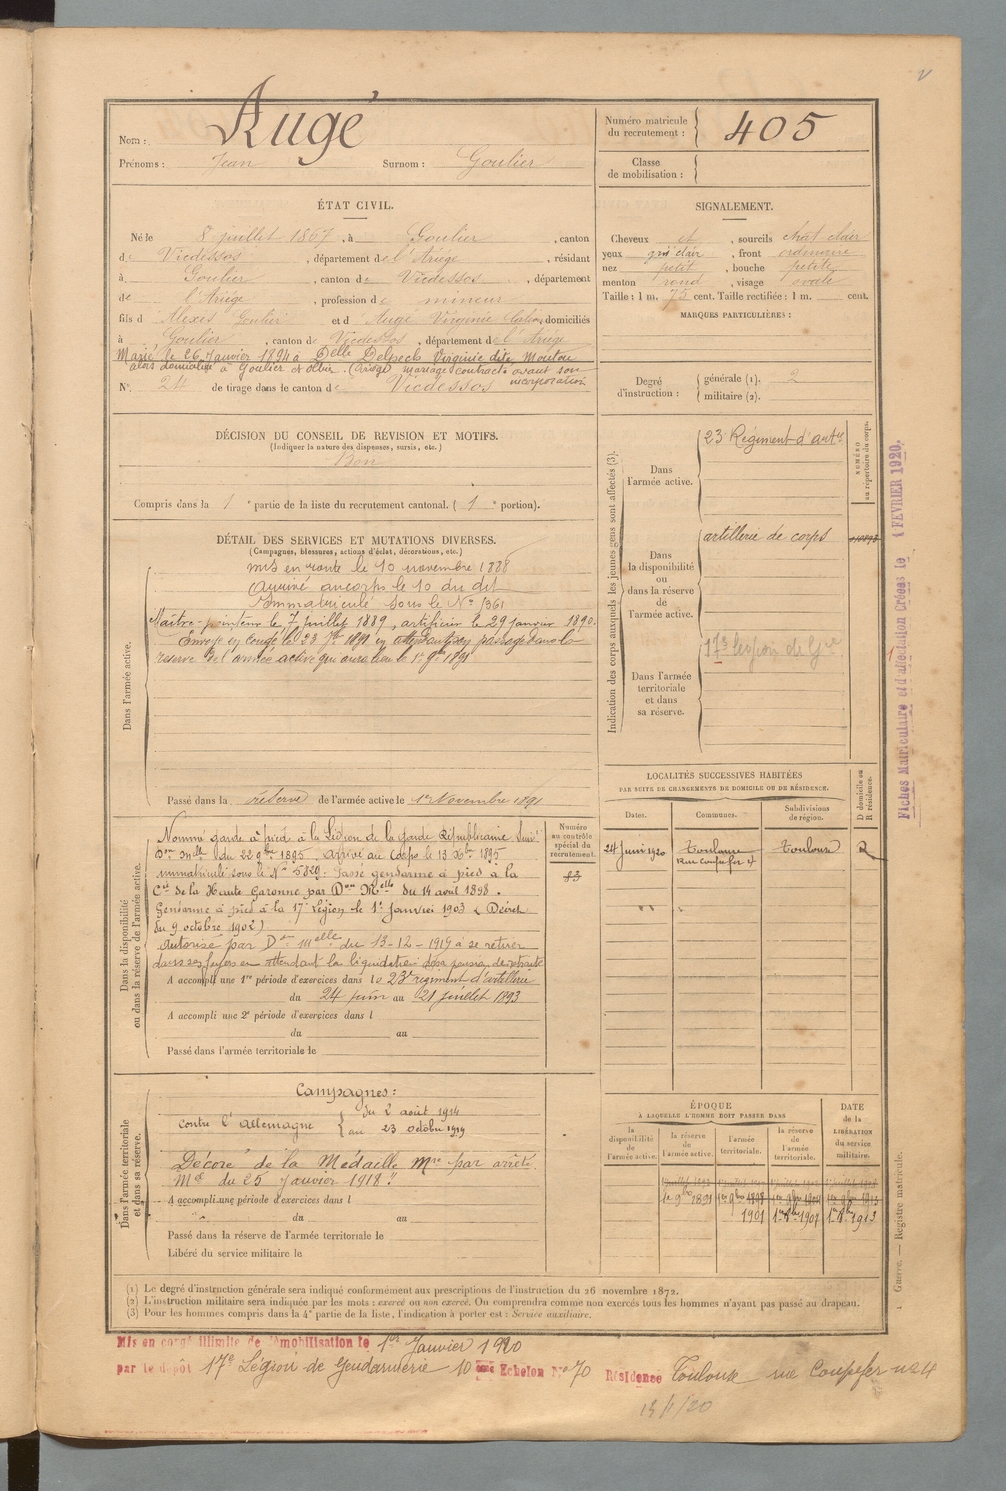 Nom : Augé
Prénoms : Jean Surnom : Goulier
Numéro matricule du recrutement : 405
Classe de mobilisation :
ÉTAT CIVIL.
Né le 8 juillet 1867, à Goulier, canton
de Vicdessos, département de l'Ariège, résidant
à Goulier, canton de Vicdessos, département
de l'Ariège, profession de mineur
fils d' Alexis Goulier et d' Augé Virginie domiciliés
à Goulier, canton de Vicdessos, département de l'Ariège
Marié le 26 Janvier 1894 à Delle Delpech Virginie dite Moutou
alors domiciliée à Goulier et Olbier (Ariège) mariage contracté avant son incorporation
N° 24 de tirage dans le canton de Vicdessos
SIGNALEMENT.
Cheveux et, sourcils chat clair
yeux gris clair, front ordinaire
nez petit, bouche petite
menton rond, visage ovale
Taille : 1 m. 75 cent. Taille rectifiée : 1 m. cent.
MARQUES PARTICULIÈRES :
Degré d'instruction : générale (1). 2
militaire (2).
DÉCISION DU CONSEIL DE REVISION ET MOTIFS.
(Indiquer la nature des dispenses, sursis, etc.)
Bon
Compris dans la 1e partie de la liste du recrutement cantonal. (1e portion).
DÉTAIL DES SERVICES ET MUTATIONS DIVERSES.
(Campagnes, blessures, actions d'éclat, décorations, etc.)
Dans l'armée active.
mis en route le 10 novembre 1888
Arrivé au corps le 10 du dit
Immatriculé sous le N° 1361
Maître-pointeur le 7 juillet 1889, artificier le 29 janvier 1890.
Envoyé en congé le 23 7bre 1891 en attendant son passage dans la
réserve de l'armée active qui aura lieu le 1er 9bre 1891
Passé dans la réserve de l'armée active le 1er Novembre 1891
Indication des corps auxquels les jeunes gens sont affectés (3).
NUMÉRO au répertoire du corps.
Dans l'armée active.
23e Régiment d'artie
Dans la disponibilité ou dans la réserve de l'armée active.
artillerie de corps
Dans l'armée territoriale et dans sa réserve.
17e légion de Gie
Fiches Matriculaire et d'affectation Créées le 1 FEVRIER 1920.
LOCALITÉS SUCCESSIVES HABITÉES
PAR SUITE DE CHANGEMENTS DE DOMICILE OU DE RÉSIDENCE.
D domicile ou R résidence.
Dates. Communes. Subdivisions de région.
24 Juin 1920 Toulouse rue coupefer 4 Toulouse R
Dans la disponibilité ou dans la réserve de l'armée active.
Numéro au contrôle spécial du recrutement.
83
Nommé garde à pied à la Légion de la Garde Républicaine suivt
Don Mlle du 22 9bre 1895, Arrivé au Corps le 13 Xbre 1895
immatriculé sous le N° 5829. Passé gendarme à pied à la
Cie de la Haute Garonne par Don Melle du 14 août 1898.
Gendarme à pied à la 17e Légion le 1er Janvier 1903 (Décret
du 9 octobre 1902)
Autorisé par Don Melle du 13-12-1919 à se retirer
dans ses foyers en attendant la liquidation de sa pension de retraite
A accompli une 1re période d'exercices dans le 23e régiment d'artillerie
du 24 juin au 21 juillet 1893
A accompli une 2e période d'exercices dans l
du au
Passé dans l'armée territoriale le
Dans l'armée territoriale et dans sa réserve.
Campagnes :
Contre l'Allemagne du 2 août 1914
au 23 octobre 1919
"Décoré de la Médaille Mre par arrêté
Mel du 25 Janvier 1918."
A accompli une période d'exercices dans l
du au
Passé dans la réserve de l'armée territoriale le
Libéré du service militaire le
ÉPOQUE
À LAQUELLE L'HOMME DOIT PASSER DANS
DATE de la LIBÉRATION du service militaire.
la disponibilité de l'armée active. la réserve de l'armée active. l'armée territoriale. la réserve de l'armée territoriale.
1er 9bre 1891 1er 9bre 1898 1er 9bre 1904 1er 9bre 1913
1901 1er 8bre 1907 1er 8bre 1913
Guerre. — Registre matricule.
(1) Le degré d'instruction générale sera indiqué conformément aux prescriptions de l'instruction du 26 novembre 1872.
(2) L'instruction militaire sera indiquée par les mots : exercé ou non exercé. On comprendra comme non exercés tous les hommes n'ayant pas passé au drapeau.
(3) Pour les hommes compris dans la 4e partie de la liste, l'indication à porter est : Service auxiliaire.
Mis en congé illimité de démobilisation le 1er Janvier 1920
par le dépôt 17e Légion de Gendarmerie 10 ème Echelon N° 70 Résidence Toulouse rue Coupefer n° 4